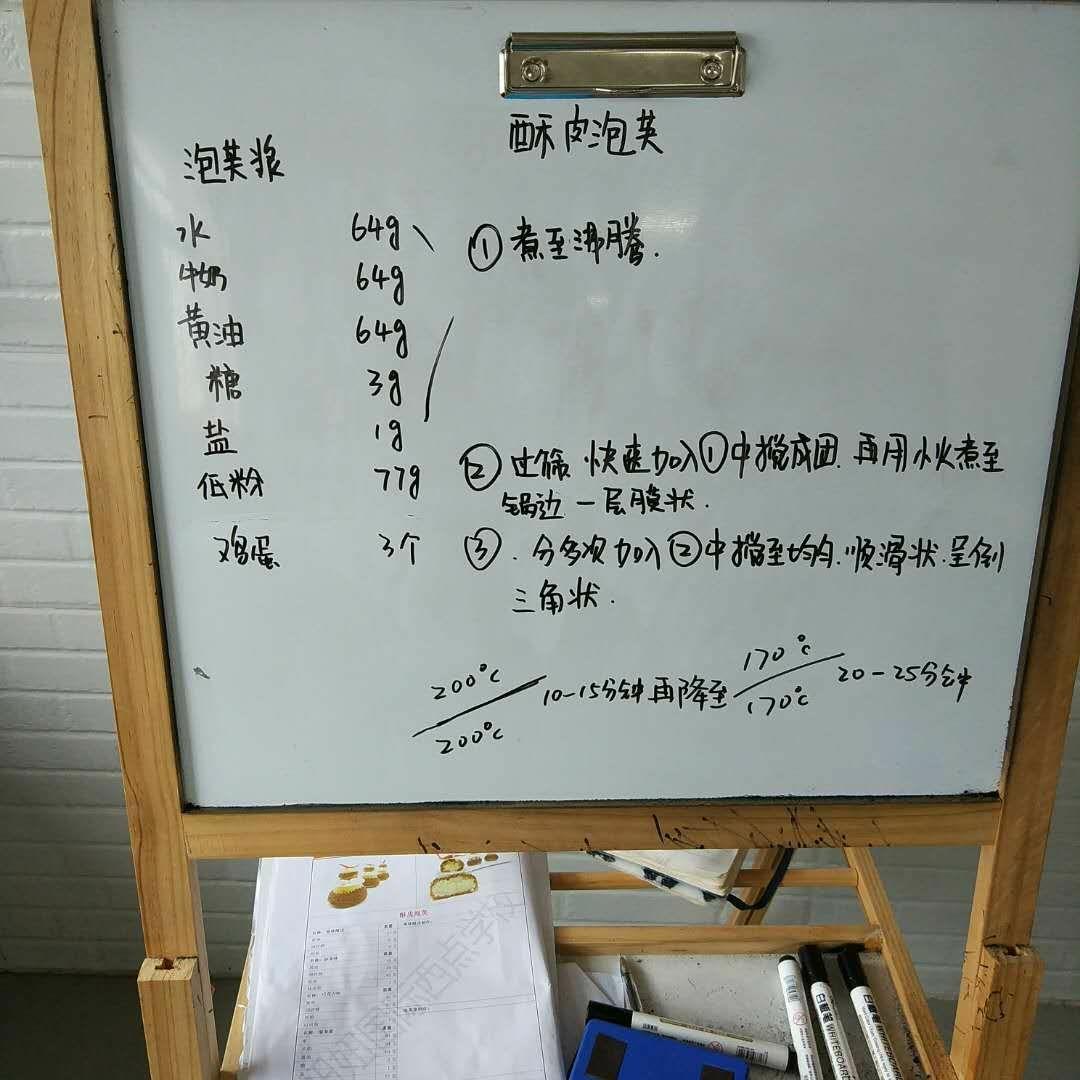 酥皮泡芙
泡芙浆
水 64g
① 煮至沸腾.
牛奶 64g
黄油 64g
糖 3g
盐 1g
低粉 77g
② 过筛 快速加入①中搅成团. 再用小火煮至
锅边一层膜状.
鸡蛋 3个
③. 分多次加入②中搅至均匀.顺滑状.呈倒
三角状.
200°C/200°C 10-15分钟再降至 170°C/170°C 20-25分钟
酥皮泡芙
西点学校
白板笔 WHITEBOARD
WHITEBOARD